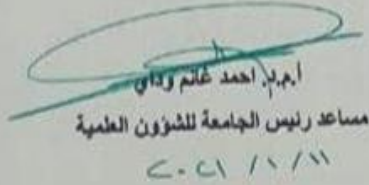 أ.م.د. احمد غانم وداي
مساعد رئيس الجامعة للشؤون العلمية
٢٠٢١ / ١ / ١١